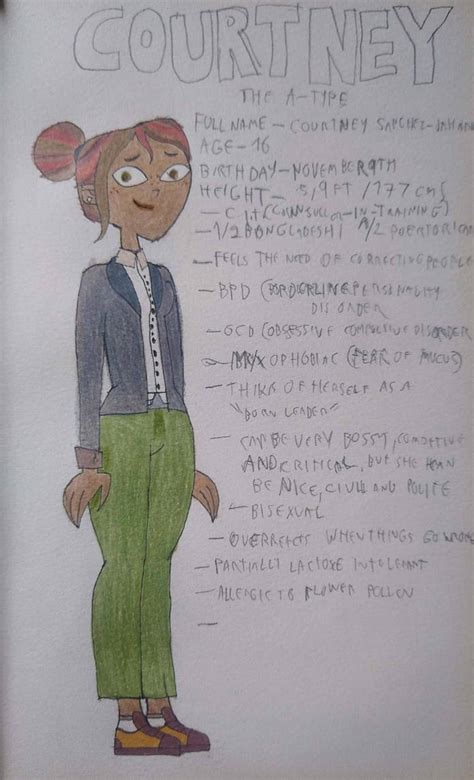 COURTNEY
THE A-TYPE
FULL NAME - COURTNEY
AGE - 16
BIRTHDAY - NOVEMBER 9TH
HEIGHT - 5,9 FT / 177 CMS
- CIT (-IN-TRAINING)
- 1/2 BONGLADESHI 1/2
- FEELS THE NEED OF CORRECTIVE PEOPLE
- BPD (BORDERLINE PERSONALITY
DISORDER
- OCD (OBSESSIVE COMPULSIVE DISORDER
- MYXOPHOBIAC (FEAR OF MUCUS)
- THINK OF HERSELF AS A
"BORN LEADER"
- CAN BE VERY BOSSY,
AND CRITICAL, BUT SHE
BE NICE, CIVIL AND POLITE
- BISEXUAL
- OVERREACTS WHEN THINGS GO WRONG
- PARTIALLY LACTOSE INTOLERANT
- ALLERGIC TO FLOWER POLLEN
-